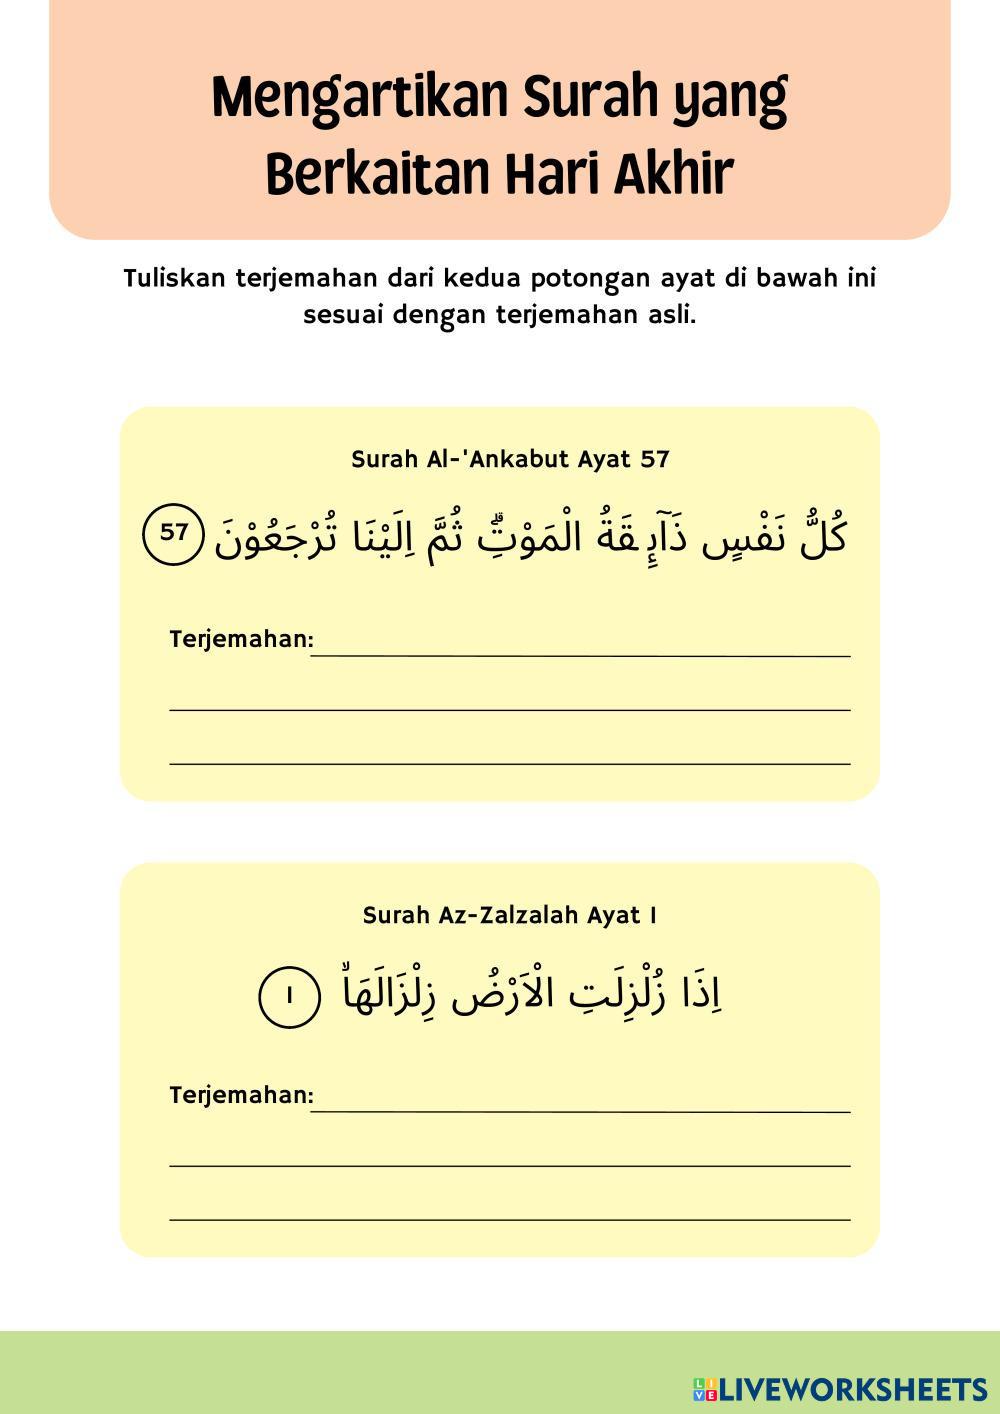 Mengartikan Surah yang
Berkaitan Hari Akhir
Tuliskan terjemahan dari kedua potongan ayat di bawah ini
sesuai dengan terjemahan asli.
Surah Al-'Ankabut Ayat 57
كُلُّ نَفْسٍ ذَاۤىِٕقَةُ الْمَوْتِۗ ثُمَّ اِلَيْنَا تُرْجَعُوْنَ 57
Terjemahan:
Surah Az-Zalzalah Ayat 1
اِذَا زُلْزِلَتِ الْاَرْضُ زِلْزَالَهَاۙ 1
Terjemahan:
LIVE LIVEWORKSHEETS